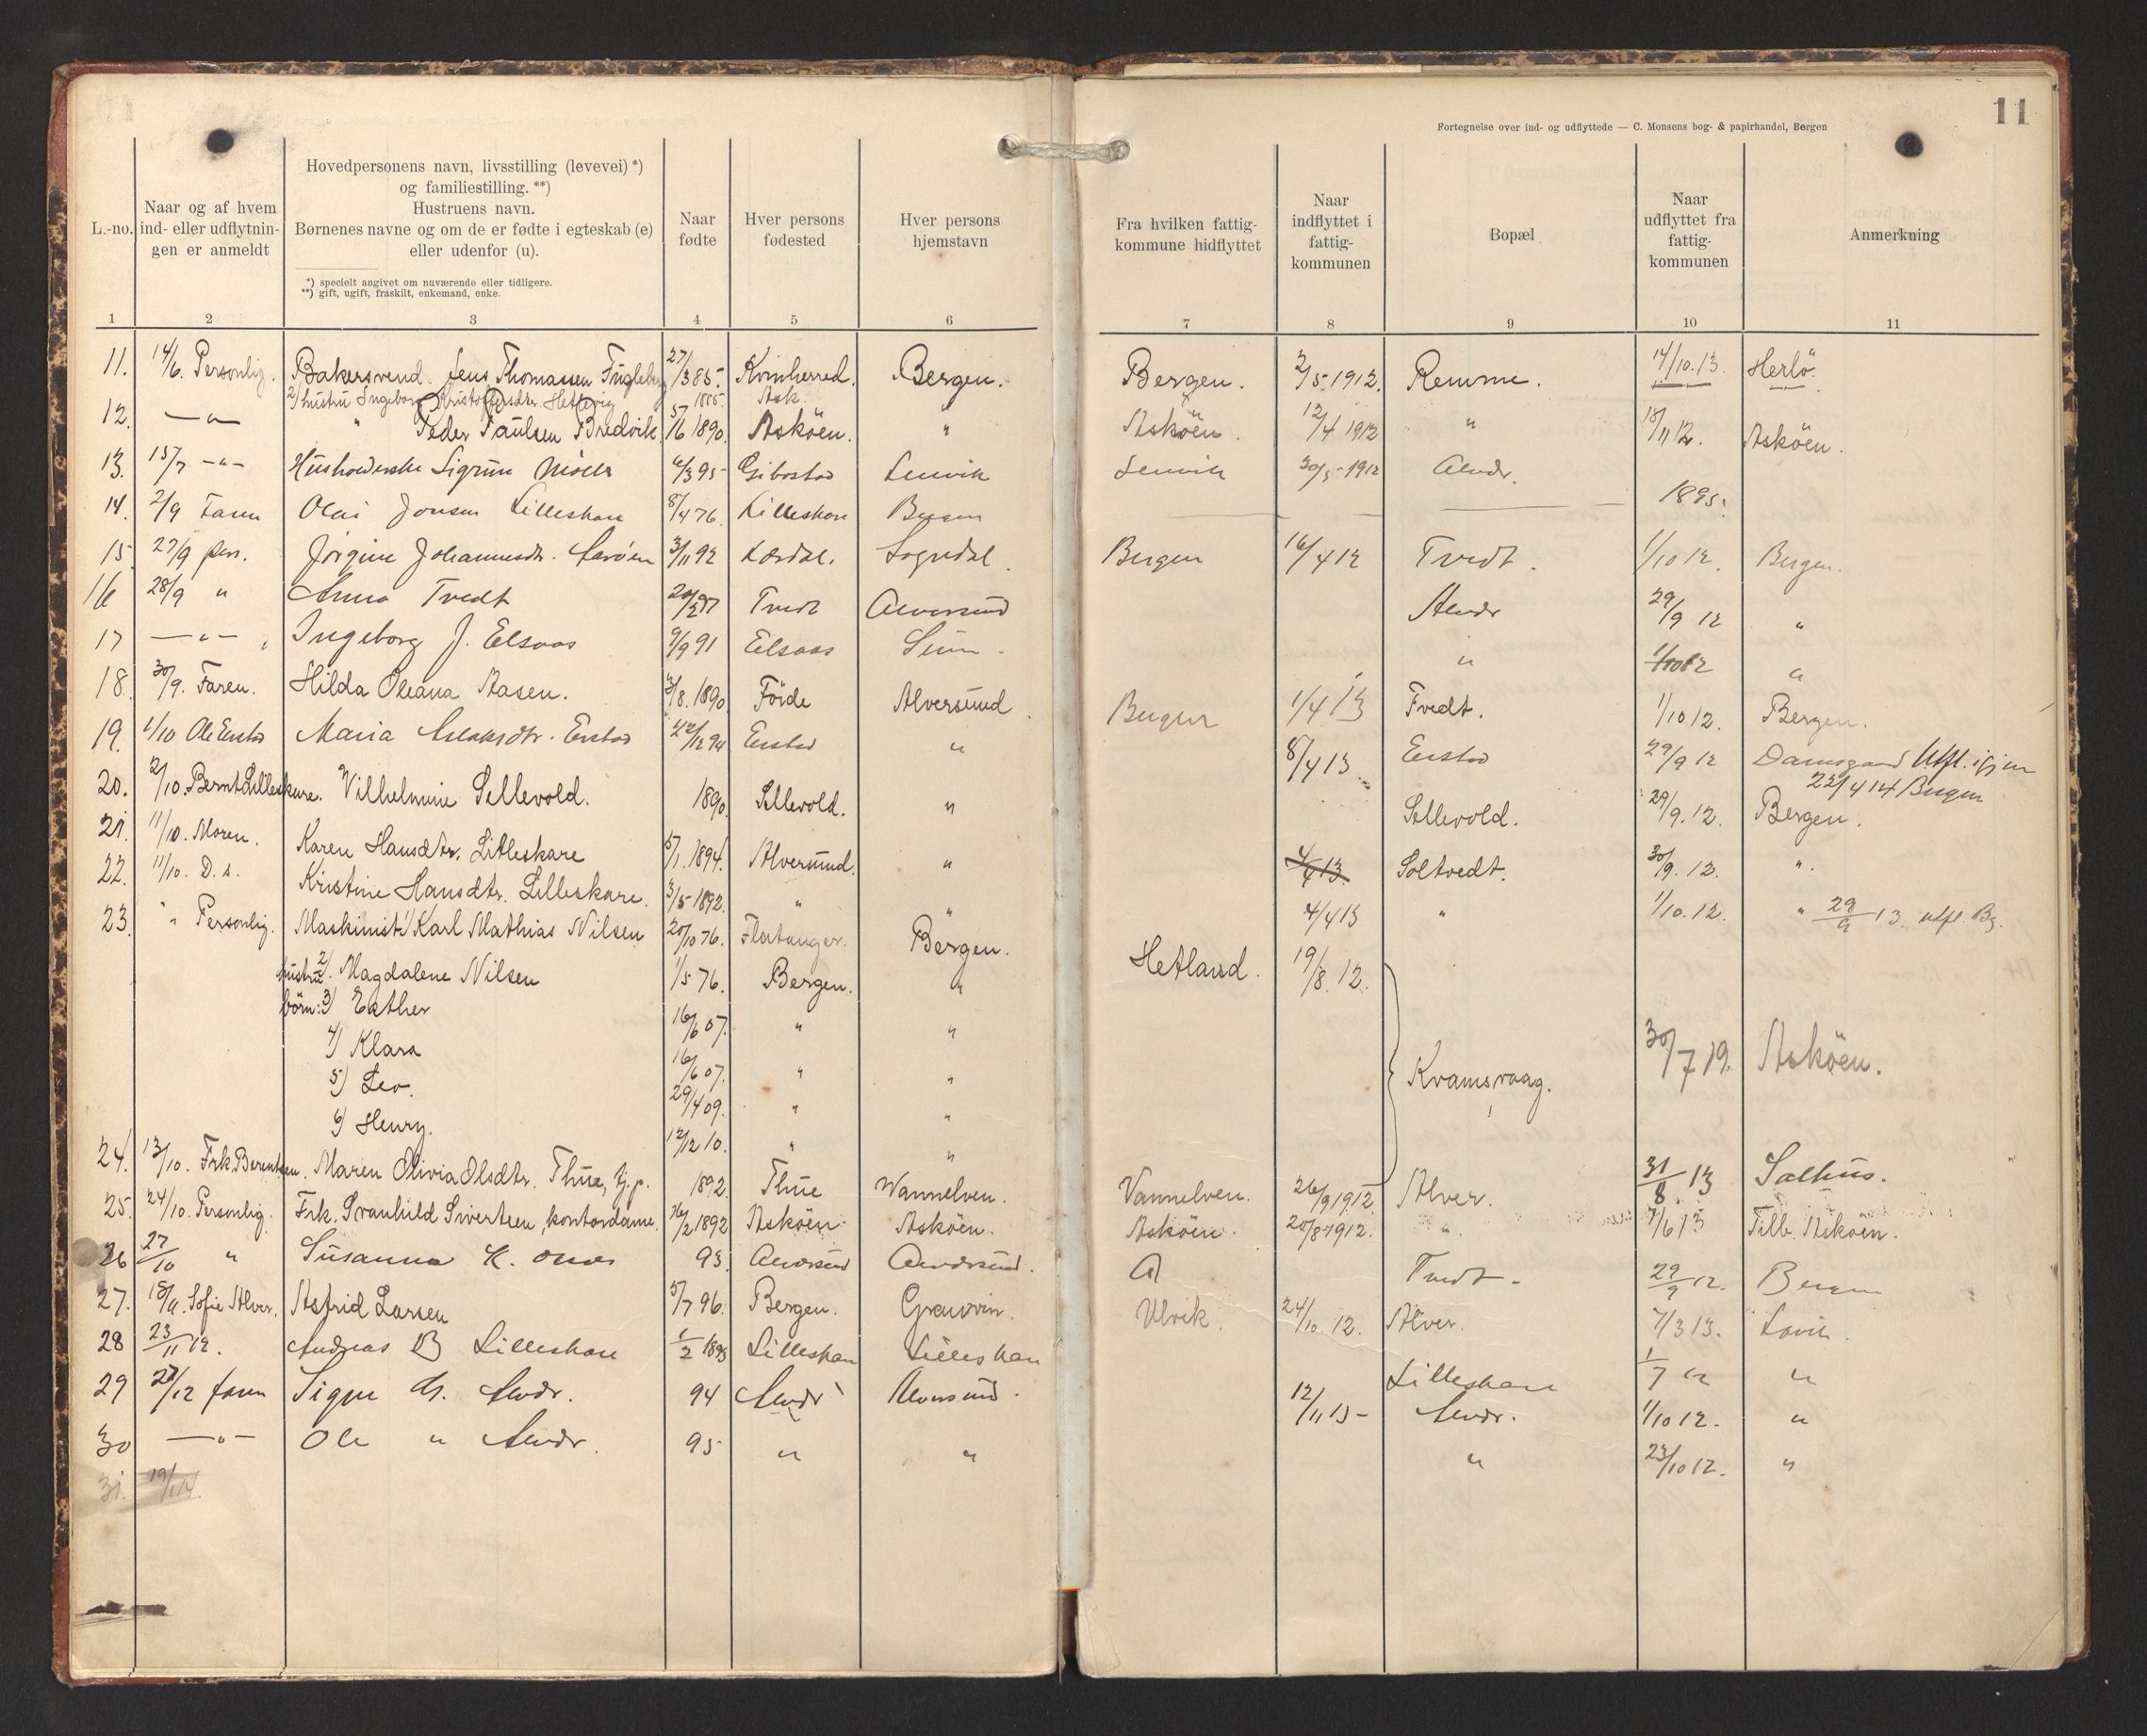 11
Fortegnelse over ind- og udflyttede — C. Monsens bog- & papirhandel, Bergen
L.-no.
Naar og af hvem
ind- eller udflytnin-
gen er anmeldt
Hovedpersonens navn, livsstilling (levevei) *)
og familiestilling. **)
Hustruens navn.
Børnenes navne og om de er fødte i egteskab (e)
eller udenfor (u).
*) specielt angivet om nuværende eller tidligere.
**) gift, ugift, fraskilt, enkemand, enke.
Naar
fødte
Hver persons
fødested
Hver persons
hjemstavn
Fra hvilken fattig-
kommune hidflyttet
Naar
indflyttet i
fattig-
kommunen
Bopæl
Naar
udflyttet fra
fattig-
kommunen
Anmerkning
1 2 3 4 5 6 7 8 9 10 11
11. 14/6. Personlig. Bakersvend. Jens Thomassen Fugleberg 27/3 85. Kvinherred. Bergen. Bergen. 2/5 1912. Remme. 14/10.13. Herlö.
2) hustru Ingeborg 1885. Ask.
12. —"— " Peder Paulsen Bredvik. 5/6 1890. Asköen. " Asköen. 12/4 1912 " 18/11 12. Asköen.
13. 15/7 —"— Sigrun 6/3 95 Gibostad Lenvik Lenvik 30/5 1912 Alver.
14. 2/9 Faren Olai Jonsen Lilleskare 8/4 76. Lilleskare Bergen — — — 1895.
15 27/9 pers. Jörgine Johannesdr. 3/11 92 Lærdal. Sogndal. Bergen 16/4 12 Tvedt. 1/10 12. Bergen.
16 28/9 " Anna Tvedt Tvedt Alversund Alver 29/9 12 "
17 —"— Ingeborg J. Eelsaas 9/9 91 Eelsaas " "
18. 30/9. Faren. Hilda Oleana Aasen. 3/8. 1890 Förde Alversund. Bergen 1/4 13 Tvedt. 1/10 12. Bergen.
19. 1/10 Ole Eerstad Maria Eerstad 22/12 94 Eerstad " 8/4 13 Eerstad 29/9 12 Damsgaard Utfl. igjen
22/4 14 Bergen
20. 2/10. Bernt Lilleskare. Vilhelmine Sellevold. 1890. Sellevold. " Sellevold. 29/9. 12. Bergen.
21. 11/10. Moren. Karen Hansdtr. Lilleskare 5/1. 1894. Alversund. " 4/4 13. Soltvedt. 30/9. 12. ".
22. 11/10. D. s. Kristine Hansdtr. Lilleskare. 3/5 1892. " " 4/4 13 " 1/10. 12. " 29/9 13. utfl. Bg.
23. " Personlig. Maskinist 1) Karl Mathias Nilsen 20/10 76. Flatanger. Bergen. Hetland. 19/8. 12.
hustru 2). Magdalene Nilsen 1/5 76. Bergen. "
börn: 3) Esther 16/6 07. " "
4) Klara 16/6 07. " "
5) Leo. 29/4 09. " " Kvamsvaag. 30/7 19. Asköen.
6) Henry. 12/12 10. " "
24. 13/10. Frk. Berentsen. Maren Olivia Olsdtr. Thue, tj.p. 1892. Thue Wannelven. Vannelven. 26/9 1912. Alver. 31/8. 13 Salhus.
25. 24/10. Personlig. Frk. Svanhild Sivertsen, kontordame. 26/2 1892 Asköen Asköen. Asköen. 20/8 1912. ". 7/6 13 Tilb. Asköen.
26 27/10 " Susanna K. 93. Alversund Alversund. A Tvedt 29/9 12. Bergen
27. 18/11. Sofie Alver. Astrid Larsen 5/7 96. Bergen. Granvin. Ulvik. 24/10. 12. Alver. 7/3 13. Lavik.
28 23/11 12. Andreas B Lilleskare 1/2 1893 Lilleskare Lilleskare Lilleskare 1/7 12 "
29 27/12 faren Alver. 94 Alver Alversund. 12/11 13 Alver. 1/10 12. "
30 —"— Ole " Alver. 95 " " " 23/10 12. "
31. 19/1 14